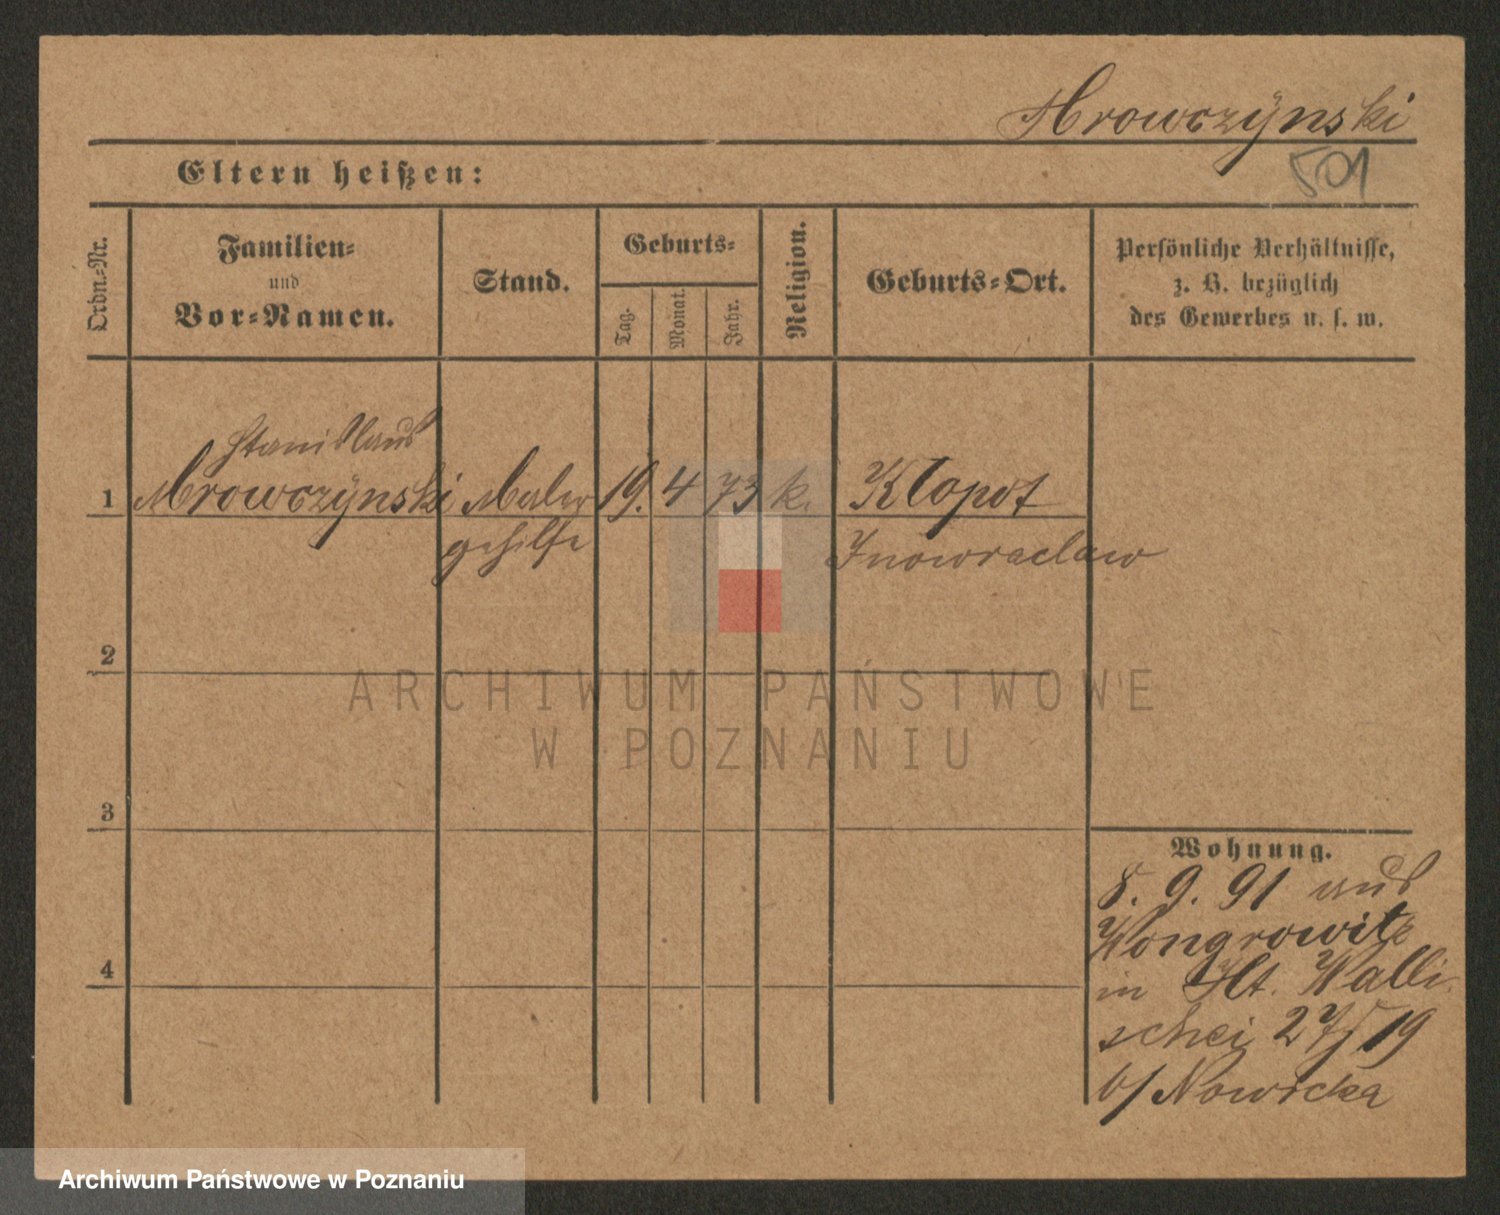 Mrowczÿnski
501
Eltern heißen:
Ordn.=Nr.
Familien=
und
Vor=Namen.
Stand.
Geburts=
Tag.
Monat.
Jahr.
Religion.
Geburts=Ort.
Persönliche Verhältnisse,
z. B. bezüglich
des Gewerbes u. s. w.
Stanislaus
1 Mrowczÿnski Maler 19. 4 73 k. Klopot
gehilfe Inowraclaw
2
3
4
Wohnung.
8. 9. 91 aus
Wongrowitz
in St. Walli
schei 27/19
b/ Nowicka
ARCHIWUM PAŃSTWOWE
W POZNANIU
Archiwum Państwowe w Poznaniu